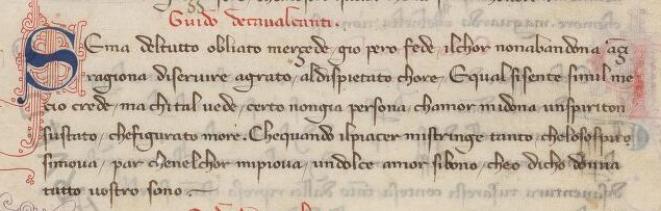 Guido decavalcanti.
SEma deltutto obliato merçede, gio pero fede, ilchor nonabandona, açi
ragiona diseruire agrato, aldispietato chore, Equal sisente simil me
cio crede, ma chi tal uede, certo nongia persona, chamor midona unspirito n
sustato, chefigurato more. Chequando ilpiacer mistringe tanto, chelosospiro
simoua, par chenelchor mipioua, undolce amor sibono, cheo dicho donna
tutto uostro sono